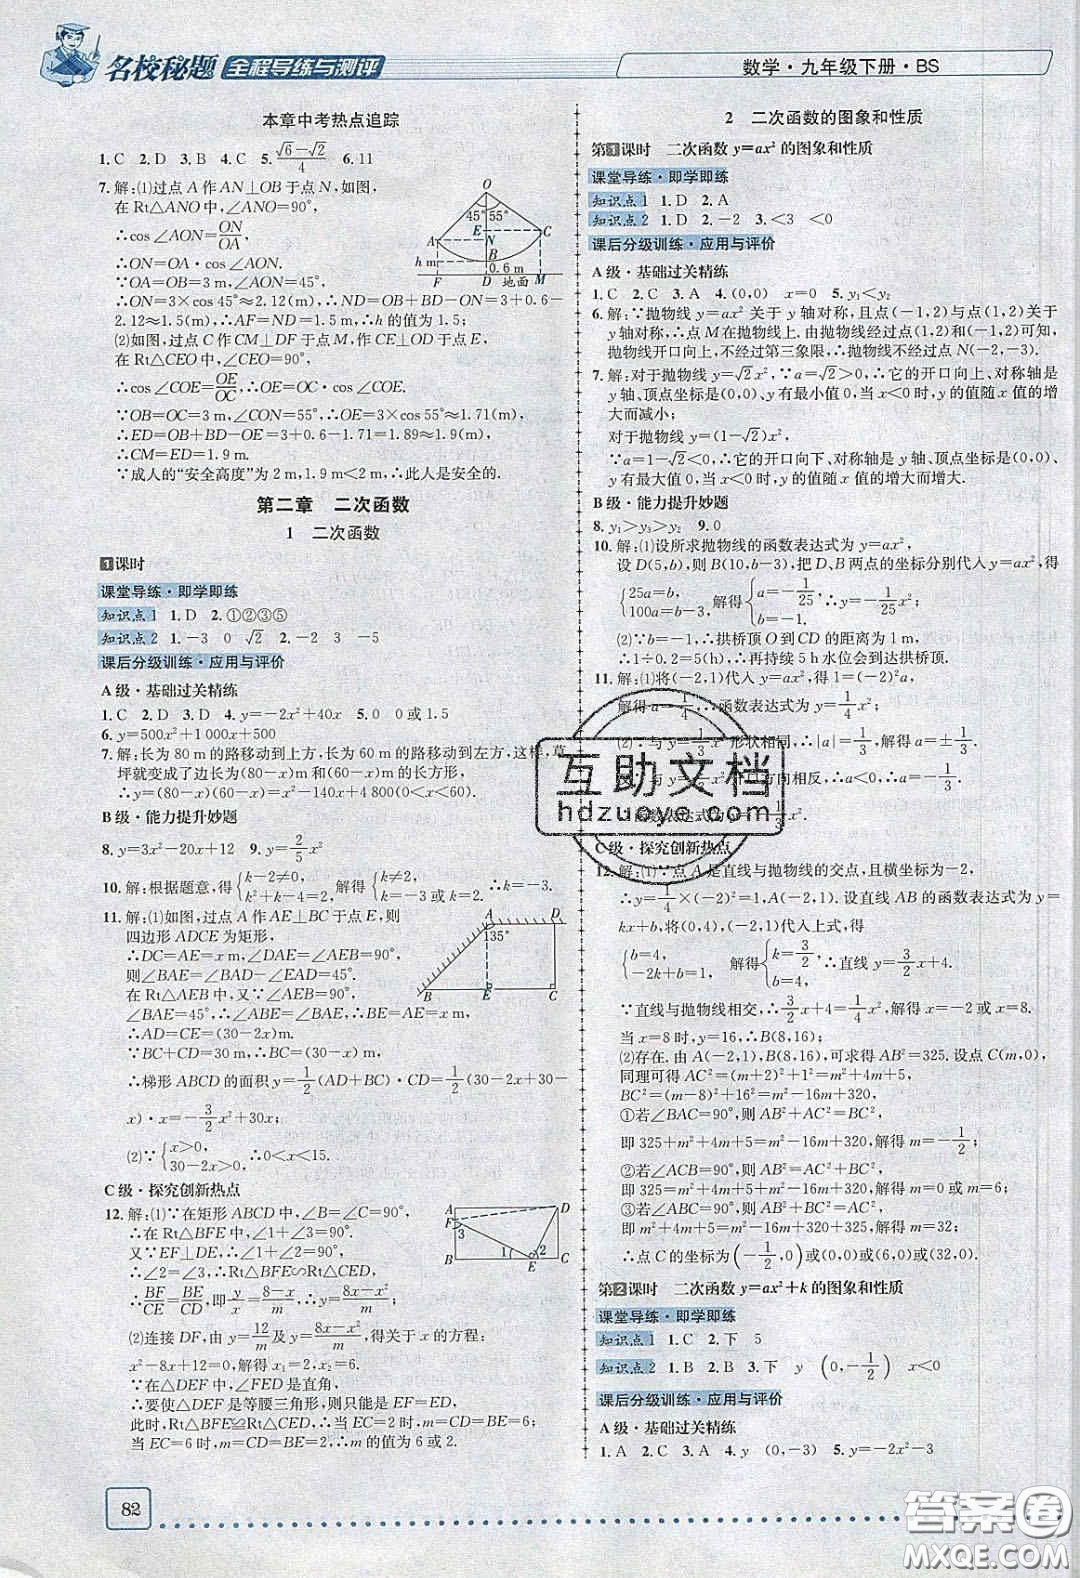 名校秘题 全程导练与测评
数学·九年级下册·BS
本章中考热点追踪
1.C 2.D 3.B 4.C 5.(√6-√2)/4 6.11
7.解:(1)过点A作AN⊥OB于点N,如图,
在Rt△ANO中,∠ANO=90°,
∴cos∠AON=ON/OA,
∴ON=OA·cos∠AON.
∵OA=OB=3 m,∠AON=45°,
∴ON=3×cos 45°≈2.12(m),∴ND=OB+BD-ON=3+0.6-
2.12≈1.5(m),∴AF=ND=1.5(m),∴h的值为1.5;
(2)如图,过点C作CM⊥DF于点M,作CE⊥OD于点E,
在Rt△CEO中,∠CEO=90°,
∴cos∠COE=OE/OC,∴OE=OC·cos∠COE.
∵OB=OC=3 m,∠CON=55°,∴OE=3×cos55°≈1.71(m),
∴ED=OB+BD-OE=3+0.6-1.71=1.89≈1.9(m),
∴CM=ED=1.9 m.
∵成人的“安全高度”为2 m,1.9 m<2 m,∴此人是安全的.
O
45° 55°
E C
A N
B
h m 0.6 m
F D 地面 M
第二章 二次函数
1 二次函数
1课时
课堂导练·即学即练
知识点1 1.D 2.①②③⑤
知识点2 1.-3 0 √2 2.-2 3 -5
课后分级训练·应用与评价
A级·基础过关精练
1.C 2.D 3.D 4.y=-2x²+40x 5.0 0或1.5
6.y=500x²+1 000x+500
7.解:长为80 m的路移动到上方,长为60 m的路移动到左方,这样,草
坪就变成了边长为(80-x)m和(60-x)m的长方形,
∴y=(80-x)(60-x)=x²-140x+4 800(0<x<60).
B级·能力提升妙题
8.y=3x²-20x+12 9.y=2/5 x²
10.解:根据题意,得{k-2≠0, k²+k-4=2, 解得{k≠2, k=-3或k=2, ∴k=-3.
11.解:(1)如图,过点A作AE⊥BC于点E,则
四边形ADCE为矩形,
∴DC=AE=x m,∠DAE=∠AEB=90°,
∠BAE=∠BAD-∠EAD=45°.
在Rt△ABE中,∵∠AEB=90°,
∠BAE=45°,∴∠ABE=∠BAE=45°,∴AE=BE=x m,
∴AD=CE=(30-2x)m.
∵BC+CD=30 m,∴BC=(30-x)m,
∴梯形ABCD的面积y=1/2(AD+BC)·CE=1/2(30-2x+30-
x)·x=-3/2x²+30x;
(2)∵{x>0, 30-2x>0, ∴0<x<15.
A D
135°
B E C
C级·探究创新热点
12.解:(1)∵在矩形ABCD中,∠B=∠C=90°,
∴在Rt△BFE中,∠1+∠BFE=90°.
又∵EF⊥DE,∴∠1+∠2=90°,
∴∠2=∠3,∴Rt△BFE∽Rt△CED,
∴BF/CE=BE/CD,即y/x=(8-x)/m,∴y=(8x-x²)/m;
(2)连接DF,由y=12/m及y=(8x-x²)/m,得关于x的方程:
x²-8x+12=0,解得x₁=2,x₂=6.
∵在△DEF中,∠FED是直角,
∴要使△DEF是等腰三角形,则只能是EF=ED,
此时,Rt△BFE≌Rt△CED,∴当EC=2时,m=CD=BE=6;
当EC=6时,m=CD=BE=2.∴m的值为6或2.
A D
F
3
1 2
B E C
2 二次函数的图象和性质
第1课时 二次函数y=ax²的图象和性质
课堂导练·即学即练
知识点1 1.D 2.A
知识点2 1.D 2.-2 3.<3 <0
课后分级训练·应用与评价
A级·基础过关精练
1.C 2.C 3.A 4.(0,0) x=0 5.y₁<y₂
6.解:∵抛物线y=ax²关于y轴对称,且点(-1,2)与点(1,2)关于
y轴对称,∴点M在抛物线上.由抛物线经过点(1,2)和(-1,2)可知,
抛物线开口向上,不经过第三象限,∴抛物线不经过点N(-2,-3).
7.解:对于抛物线y=√2x²,∵a=√2>0,∴它的开口向上、对称轴是
y轴、顶点坐标是(0,0)、y有最小值0,当x<0时,y的值随x值的增
大而减小;
对于抛物线y=(1-√2)x²,
∵a=1-√2<0,∴它的开口向下、对称轴是y轴、顶点坐标是(0,
0)、y有最大值0,当x<0时,y的值随x值的增大而增大.
B级·能力提升妙题
8.y₁>y₃>y₂ 9.0
10.解:(1)设所求抛物线的函数表达式为y=ax²,
设D(5,b),则B(10,b-3),把D、B两点的坐标分别代入y=ax²,得
{25a=b, 100a=b-3, 解得{a=-1/25, b=-1. ∴y=-1/25x²;
(2)∵b=-1,∴拱桥顶O到CD的距离为1 m,
∴1÷0.2=5(h),∴再持续5 h水位会到达拱桥顶.
11.解:(1)将(-2,1)代入y=ax²,得1=(-2)²a,
解得a=1/4,∴函数表达式为y=1/4x²;
(2)∵与y=1/3x²形状相同,∴|a|=1/3,解得a=±1/3.
又∵与y=1/3x²开口方向相反,∴a<0,∴a=-1/3.
∴函数表达式为y=-1/3x².
C级·探究创新热点
12.解:(1)∵点A是直线与抛物线的交点,且横坐标为-2,
∴y=1/4×(-2)²=1,A(-2,1).设直线AB的函数表达式为y=
kx+b,将(0,4),(-2,1)代入上式,得
{b=4, -2k+b=1, 解得{k=3/2, b=4, ∴直线y=3/2x+4.
∵直线与抛物线相交,∴3/2x+4=1/4x²,解得x=-2或x=8.
当x=8时,y=16,∴B(8,16);
(2)存在.由A(-2,1),B(8,16),可求得AB²=325.设点C(m,0),
同理可得AC²=(m+2)²+1²=m²+4m+5,
BC²=(m-8)²+16²=m²-16m+320,
①若∠BAC=90°,则AB²+AC²=BC²,
即325+m²+4m+5=m²-16m+320,解得m=-1/2;
②若∠ACB=90°,则AB²=AC²+BC²,
即325=m²+4m+5+m²-16m+320,解得m=0或m=6;
③若∠ABC=90°,则AB²+BC²=AC²,
即m²+4m+5=m²-16m+320+325,解得m=32;
∴点C的坐标为(-1/2,0)或(0,0)或(6,0)或(32,0).
第2课时 二次函数y=ax²+k的图象和性质
课堂导练·即学即练
知识点1 1.C 2.下 5
知识点2 1.B 2.B 3.下 y (0,-1/2) x<0
课后分级训练·应用与评价
A级·基础过关精练
1.A 2.C 3.A 4.y (0,-3) 5.y=-x²-3
互助文档
hdzuoye.com
82
答案圈
MXQE.COM